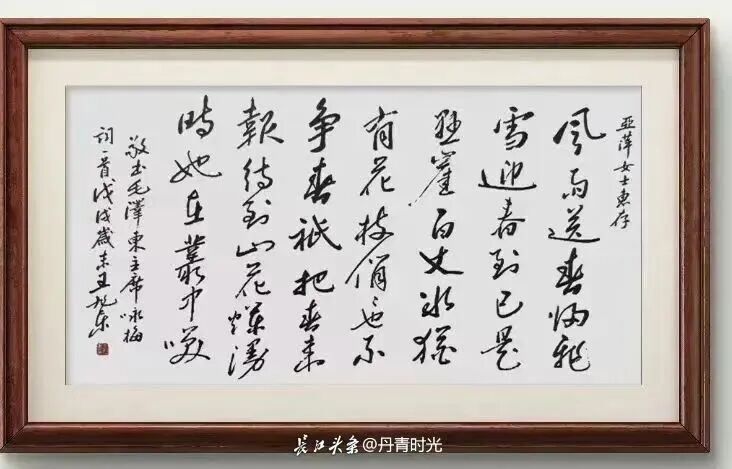 亚萍女士惠存
风雨送春归飞
雪迎春到已是
悬崖百丈冰犹
有花枝俏俏也不
争春祇把春来
報待到山花烂漫
時她在叢中咲
敬书毛澤東主席咏梅
词一首戊戌歲末王旭东
長江头条@丹青时光